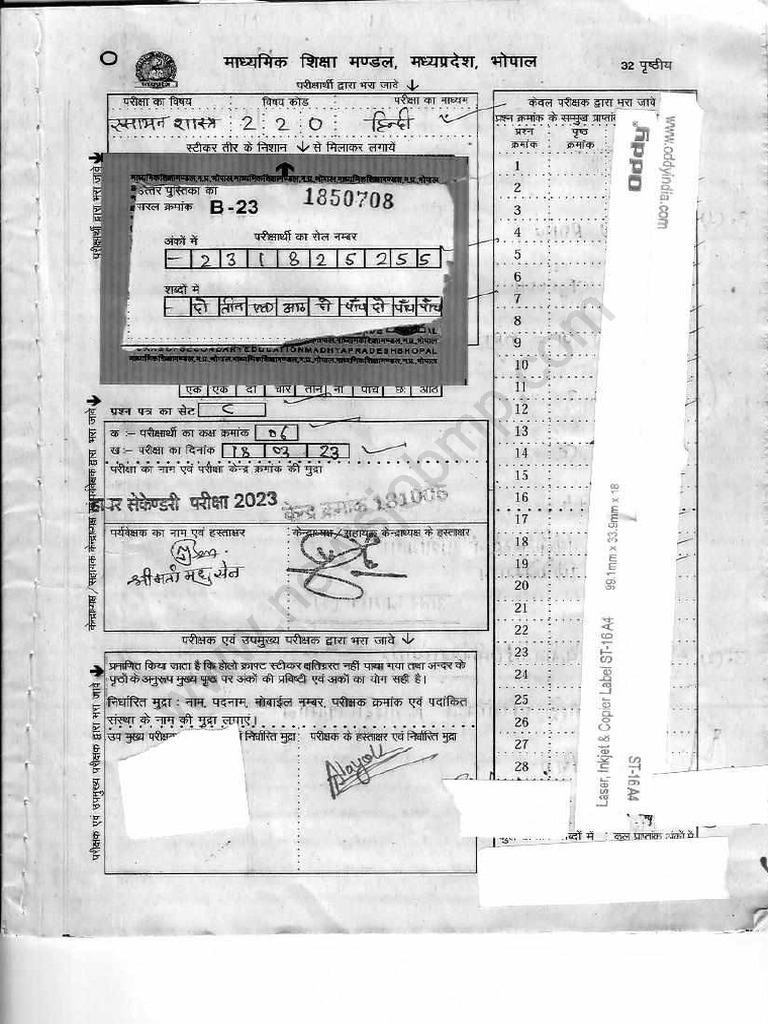 माध्यमिक शिक्षा मण्डल, मध्यप्रदेश, भोपाल
32 पृष्ठीय
परीक्षार्थी द्वारा भरा जावे ↓
परीक्षा का विषय विषय कोड परीक्षा का माध्यम
रसायन शास्त्र 2 2 0 हिन्दी
स्टीकर तीर के निशान ↓ से मिलाकर लगायें
उत्तर पुस्तिका का
सरल क्रमांक B-23 1850708
अंकों में परीक्षार्थी का रोल नम्बर
- 2 3 1 8 2 5 2 5 5
शब्दों में
- दो तीन एक आठ दो पाँच दो पाँच पाँच
एक एक दो चार तीन नौ पांच छः आठ
प्रश्न पत्र का सेट C
क :- परीक्षार्थी का कक्ष क्रमांक 06
ख :- परीक्षा का दिनांक 18 03 23
परीक्षा का नाम एवं परीक्षा केन्द्र क्रमांक की मुद्रा
हायर सेकेण्डरी परीक्षा 2023 केन्द्र क्रमांक 181006
पर्यवेक्षक का नाम एवं हस्ताक्षर
केन्द्राध्यक्ष / सहायक केन्द्राध्यक्ष के हस्ताक्षर
श्रीमती मधु सेन
परीक्षक एवं उपमुख्य परीक्षक द्वारा भरा जावे ↓
प्रमाणित किया जाता है कि होलो क्राफ्ट स्टीकर क्षतिग्रस्त नहीं पाया गया तथा अन्दर के
पृष्ठों के अनुरूप मुख्य पृष्ठ पर अंकों की प्रविष्टी एवं अंकों का योग सही है।
निर्धारित मुद्रा : नाम, पदनाम, मोबाईल नम्बर, परीक्षक क्रमांक एवं पदांकित
संस्था के नाम की मुद्रा लगाएं।
उप मुख्य परीक्षक निर्धारित मुद्रा
परीक्षक के हस्ताक्षर एवं निर्धारित मुद्रा
केवल परीक्षक द्वारा भरा जावे
प्रश्न क्रमांक के सम्मुख
प्रश्न क्रमांक पृष्ठ क्रमांक
1
2
3
4
5
6
7
8
9
10
11
12
13
14
15
16
17
18
19
20
21
22
23
24
25
26
27
28
शब्दों में कुल प्राप्तांक अंकों में
www.oddyindia.com
oddy
99.1mm x 33.9mm x 18
Laser, Inkjet & Copier Label ST-16 A4
ST-16 A4
परीक्षार्थी द्वारा भरा जावे
केन्द्राध्यक्ष / सहायक केन्द्राध्यक्ष एवं पर्यवेक्षक द्वारा भरा जावे
परीक्षक एवं उपमुख्य परीक्षक द्वारा भरा जावे